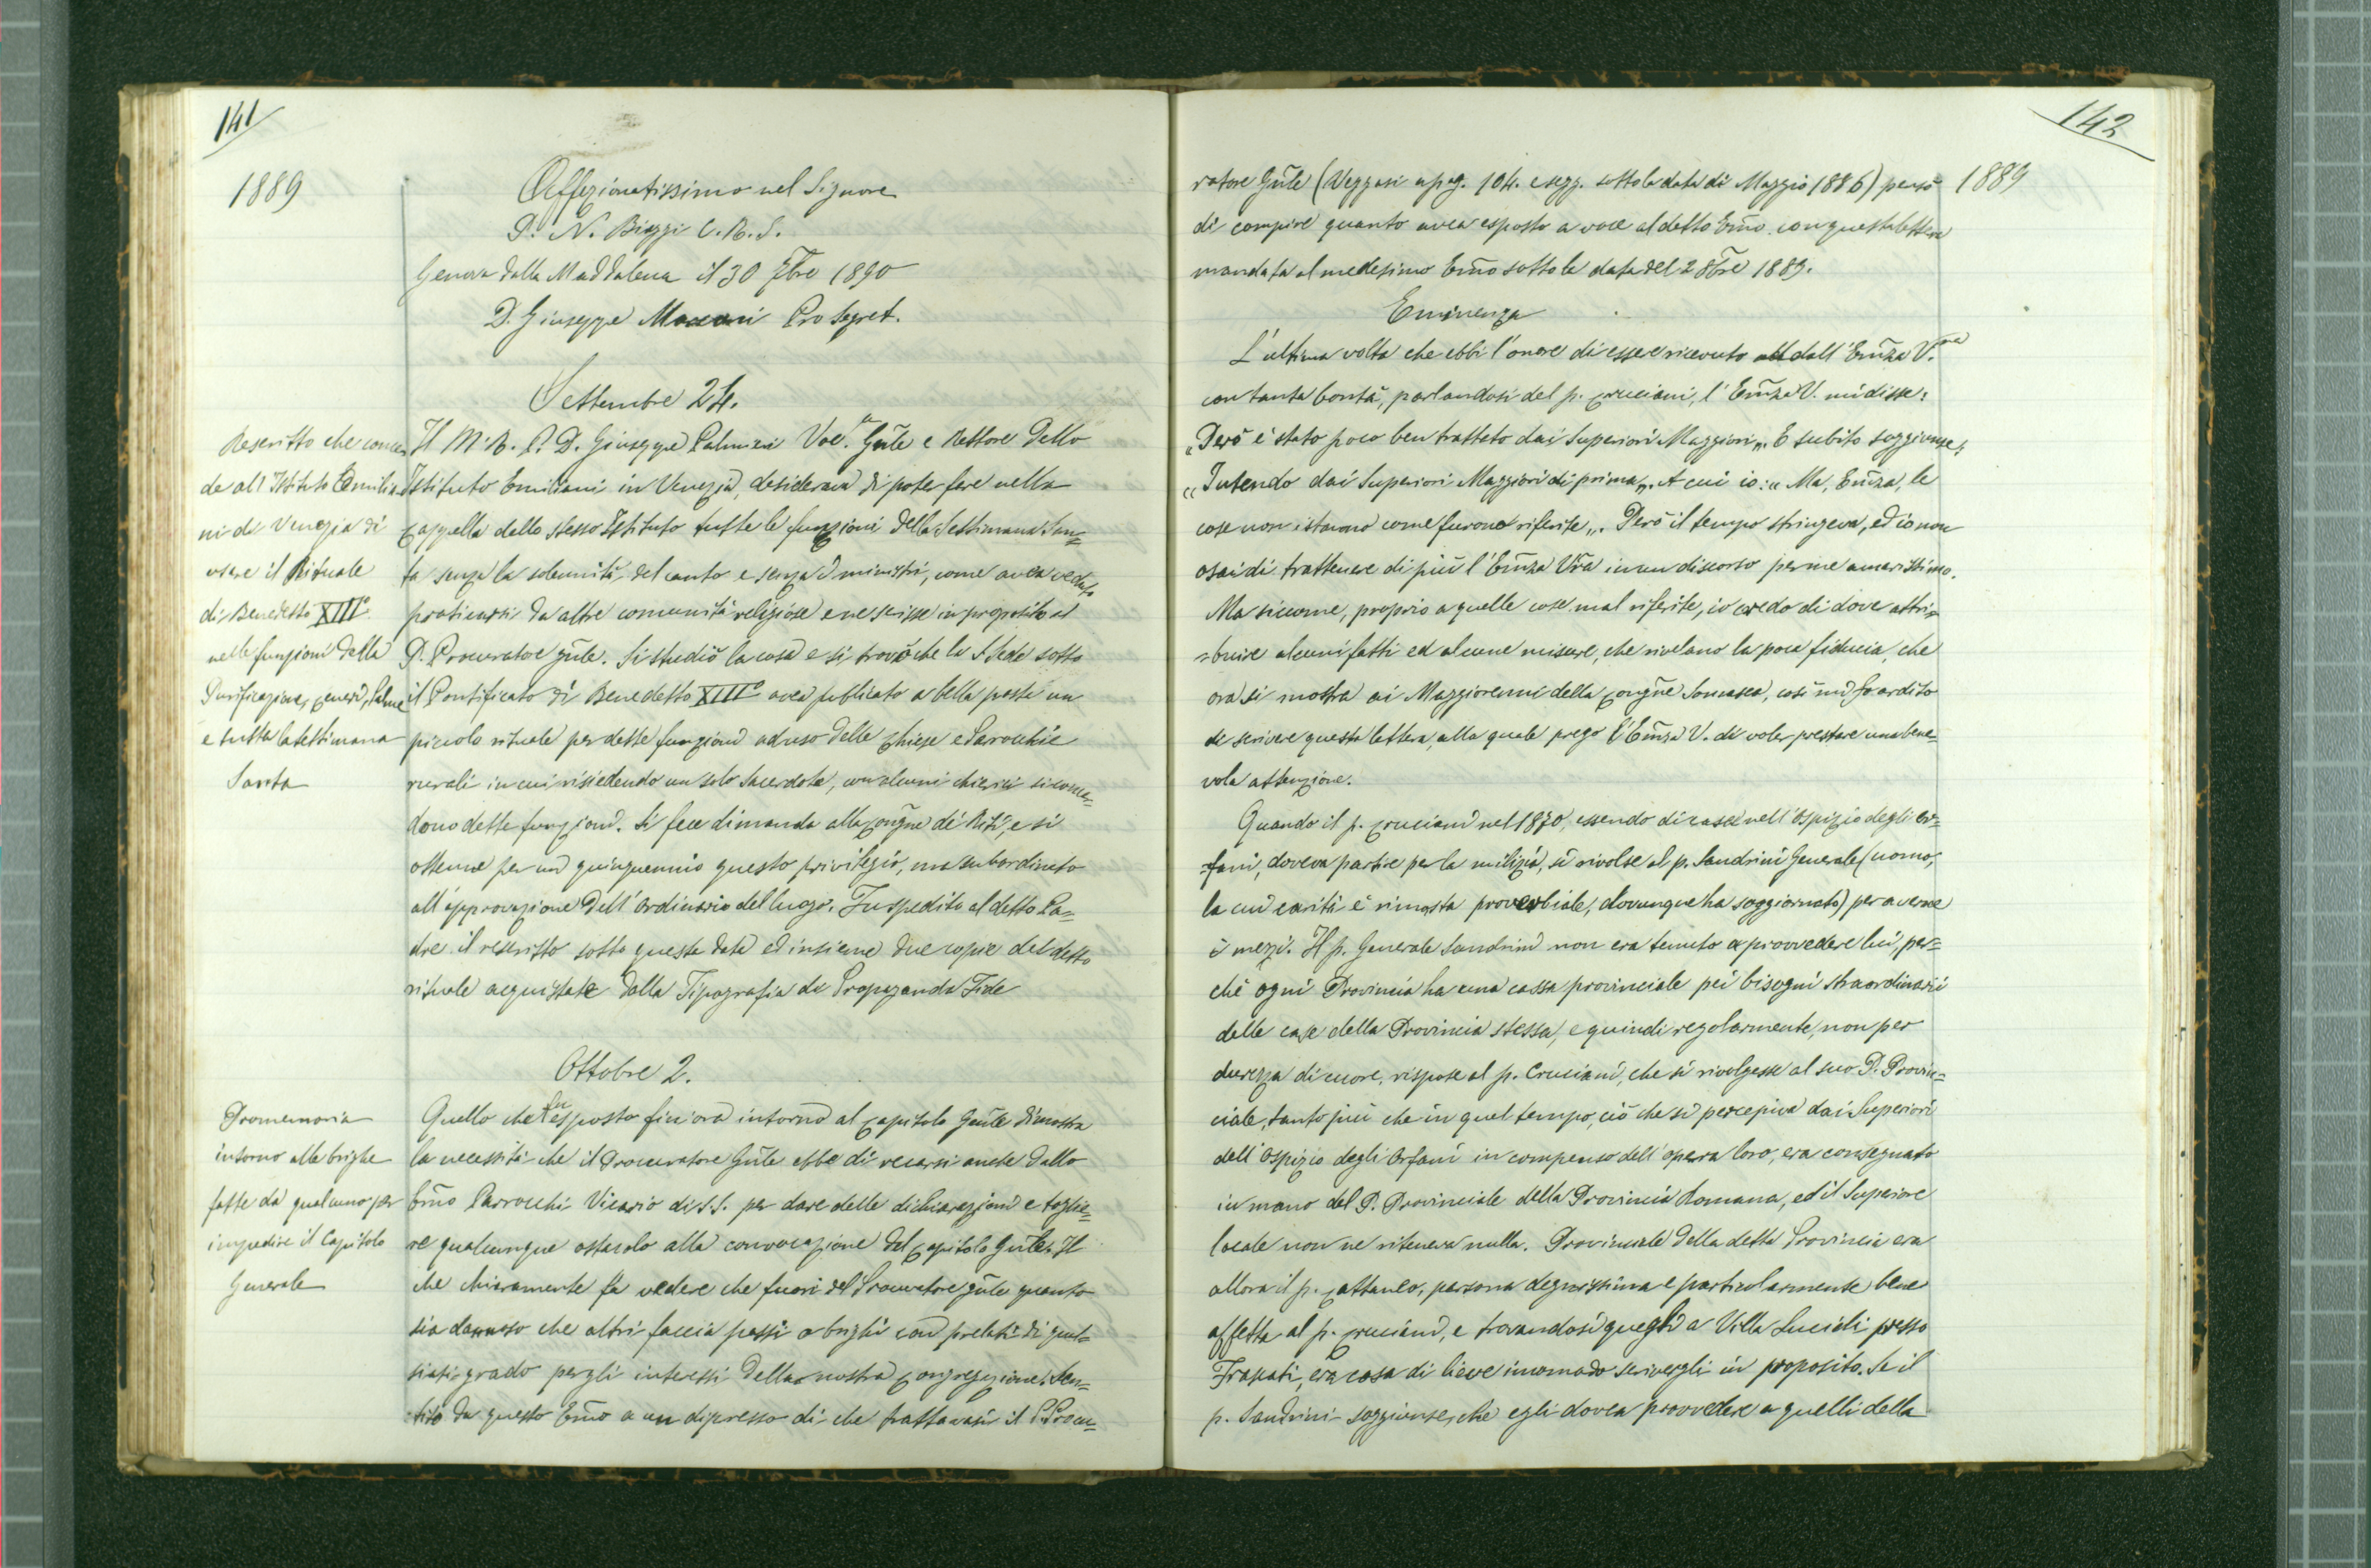 141
1889
Affezionatissimo nel Signore
D. N. Biaggi C.R.S.
Genova dalla Maddalena il 30 7bre 1890
D. Giuseppe Pro Segret.
Settembre 24.
Rescritto che conce-
de all'Istituto Emilia-
ni di Venezia di
usare il Rituale
di Benedetto XIII°
nelle funzioni della
Purificazione, Ceneri, Palme
e tutta la settimana
Santa
Il M. R. P. D. Giuseppe Palmieri Voc. Gñle e Rettore dello
Istituto Emiliani in Venezia, desiderava di poter fare nella
Cappella dello stesso Istituto tutte le funzioni della Settimana San=
ta senza la solennità del canto e senza i ministri, come avea veduto
praticarsi da altre comunità religiose e ne scrisse in proposito al
P. Procuratore gñle. Si studiò la cosa e si trovò che la S. Sede sotto
il Pontificato di Benedetto XIII° avea pubblicato a bella posta un
piccolo rituale per dette funzioni ad uso delle Chiese e Parrocchie
rurali in cui risiedendo un solo Sacerdote, con alcuni chierici si
dono dette funzioni. Si fece dimanda alla Congñe dei Riti, e si
ottenne per un quinquennio questo privilegio, ma subordinato
all'approvazione dell'Ordinario del luogo. Fu spedito al detto Pa=
dre il rescritto sotto questa data ed insieme due copie del detto
rituale acquistate dalla Tipografia de Propaganda Fide
Ottobre 2.
Promemoria
intorno alle brighe
fatte da qualcuno per
impedire il Capitolo
Generale
Quello che fu esposto fin'ora intorno al Capitolo Gñle dimostra
la necessità che il Procuratore Gñle ebbe di recarsi anche dallo
Emõ Parrocchi Vicario di S.S. per dare delle dichiarazioni e toglie=
re qualunque ostacolo alla convocazione del Capitolo Gñle. Il
che chiaramente fa vedere che fuori del Procuratore gñle quanto
sia dannoso che altri faccia passi o brighi con prelati di qual=
siasi grado per gli interessi della nostra Congregazione. Sen=
tito da questo Emõ a un dipresso di che trattavasi il P. Procu=
142
1889
ratore Gñle (Veggasi a pag. 104. e segg. sotto la data di Maggio 1886) pensò
di compire quanto avea esposto a voce al detto Emõ. con questa lettera
mandata al medesimo Emõ sotto la data del 2 8bre 1889.
Eminenza
L'ultima volta che ebbi l'onore di essere ricevuto dall'Emñza V.ra
con tanta bontà, parlandosi del p. Cruciani, l'Emñza V. mi disse:
"Però è stato poco ben trattato dai Superiori Maggiori„. E subito soggiunse,
"Intendo dai Superiori Maggiori di prima„. A cui io: "Ma, Emñza, le
cose non istavano come furono riferite„. Però il tempo stringeva, ed io non
osai di trattenere di più l'Emñza Vr̃a in un discorso per me amarissimo.
Ma siccome, proprio a quelle cose mal riferite, io credo di dove attri=
buire alcuni fatti ed alcune misure, che rivelano la poca fiducia, che
ora si mostra ai Maggiorenni della Congñe Somasca, così mi fo ardito
di scrivere questa lettera, alla quale prego l'Emñza V. di voler prestare una bene=
vola attenzione.
Quando il p. Cruciani nel 1870, essendo di casa nell'Ospizio degli Or=
fani, doveva partire per la milizia, si rivolse al p. Sandrini Generale (uomo,
la cui carità è rimasta proverbiale, dovunque ha soggiornato) per averne
i mezzi. Il p. Generale Sandrini non era tenuto a provvedere lui, per=
chè ogni Provincia ha una cassa provinciale pei bisogni straordinarii
delle case della Provincia stessa, e quindi regolarmente, non per
durezza di cuore, rispose al p. Cruciani, che si rivolgesse al suo P. Provin=
ciale, tanto più che in quel tempo, ciò che si percepiva dai Superiori
dell'Ospizio degli Orfani in compenso dell'opera loro, era consegnato
in mano del P. Provinciale della Provincia Romana, ed il Superiore
locale non ne riteneva nulla. Provinciale della detta Provincia era
allora il p. Cattaneo, persona degnissima e particolarmente bene
affetta al p. Cruciani, e trovandosi quegli a Villa Lucidi presso
Frascati, era cosa di lieve incomodo scrivergli in proposito. Se il
p. Sandrini soggiunse, che egli dovea provvedere a quelli della